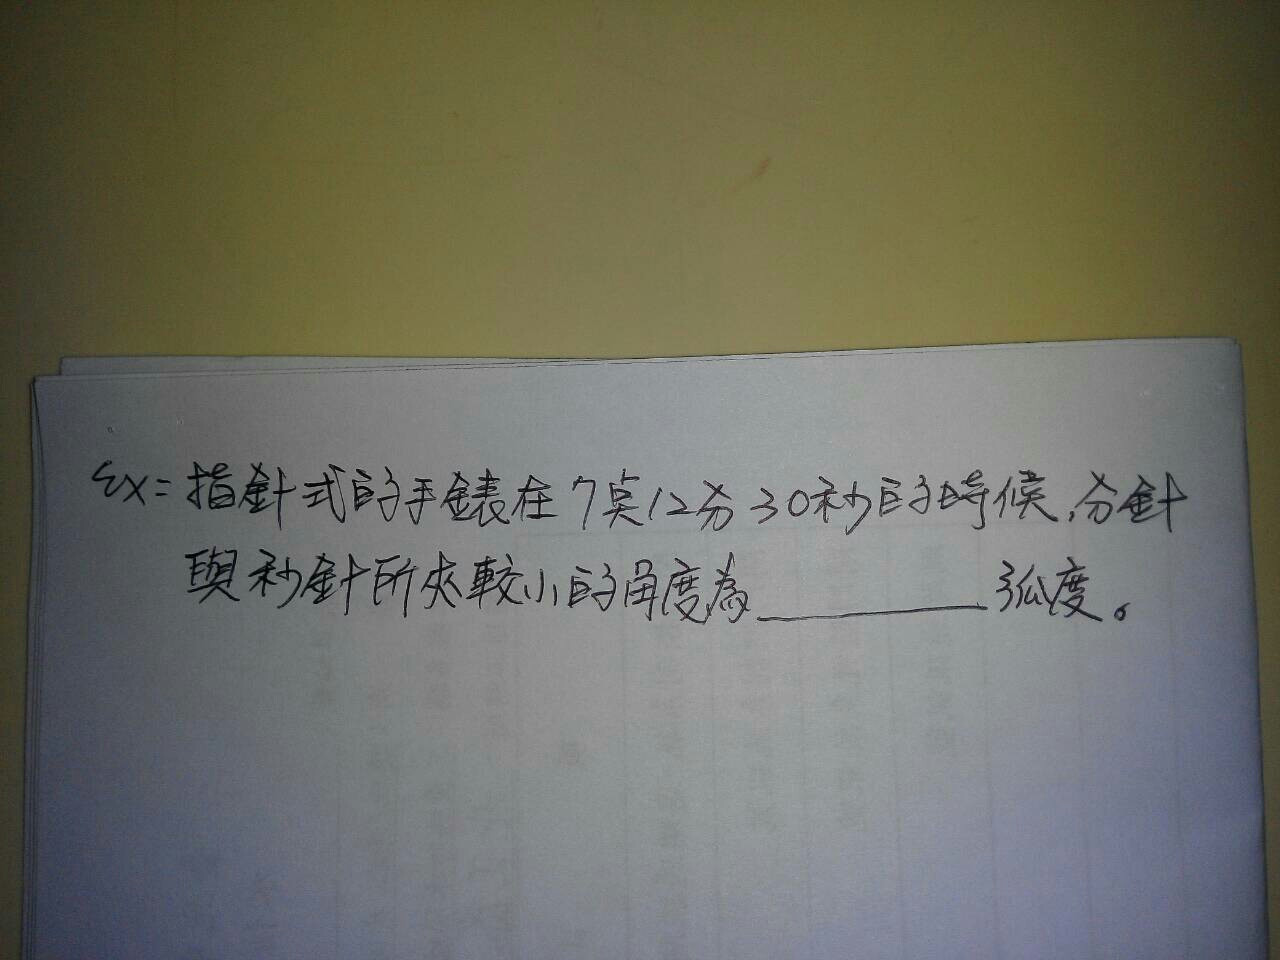 Ex=指針式的手錶在7点12分30秒的時候,分針
與秒針所夾較小的角度為__________弧度。